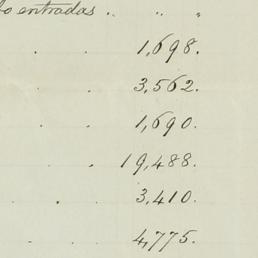 entradas .. .. "
. . 1,698.
. . 3,562.
. . 1,690.
. . 19,488.
. . 3,410.
. . . 4,775.